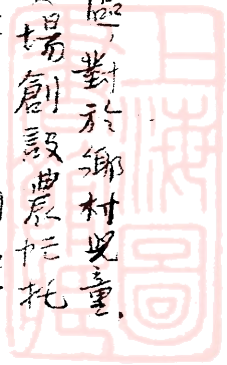 區，對於鄉村児童、
場創設農忙托
上海圖